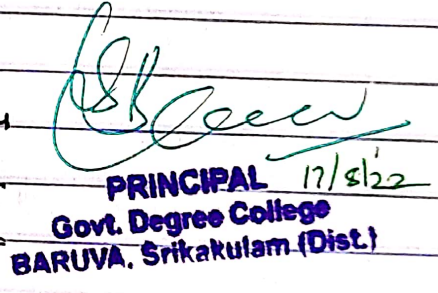 PRINCIPAL 17/8/22
Govt. Degree College
BARUVA, Srikakulam (Dist.)